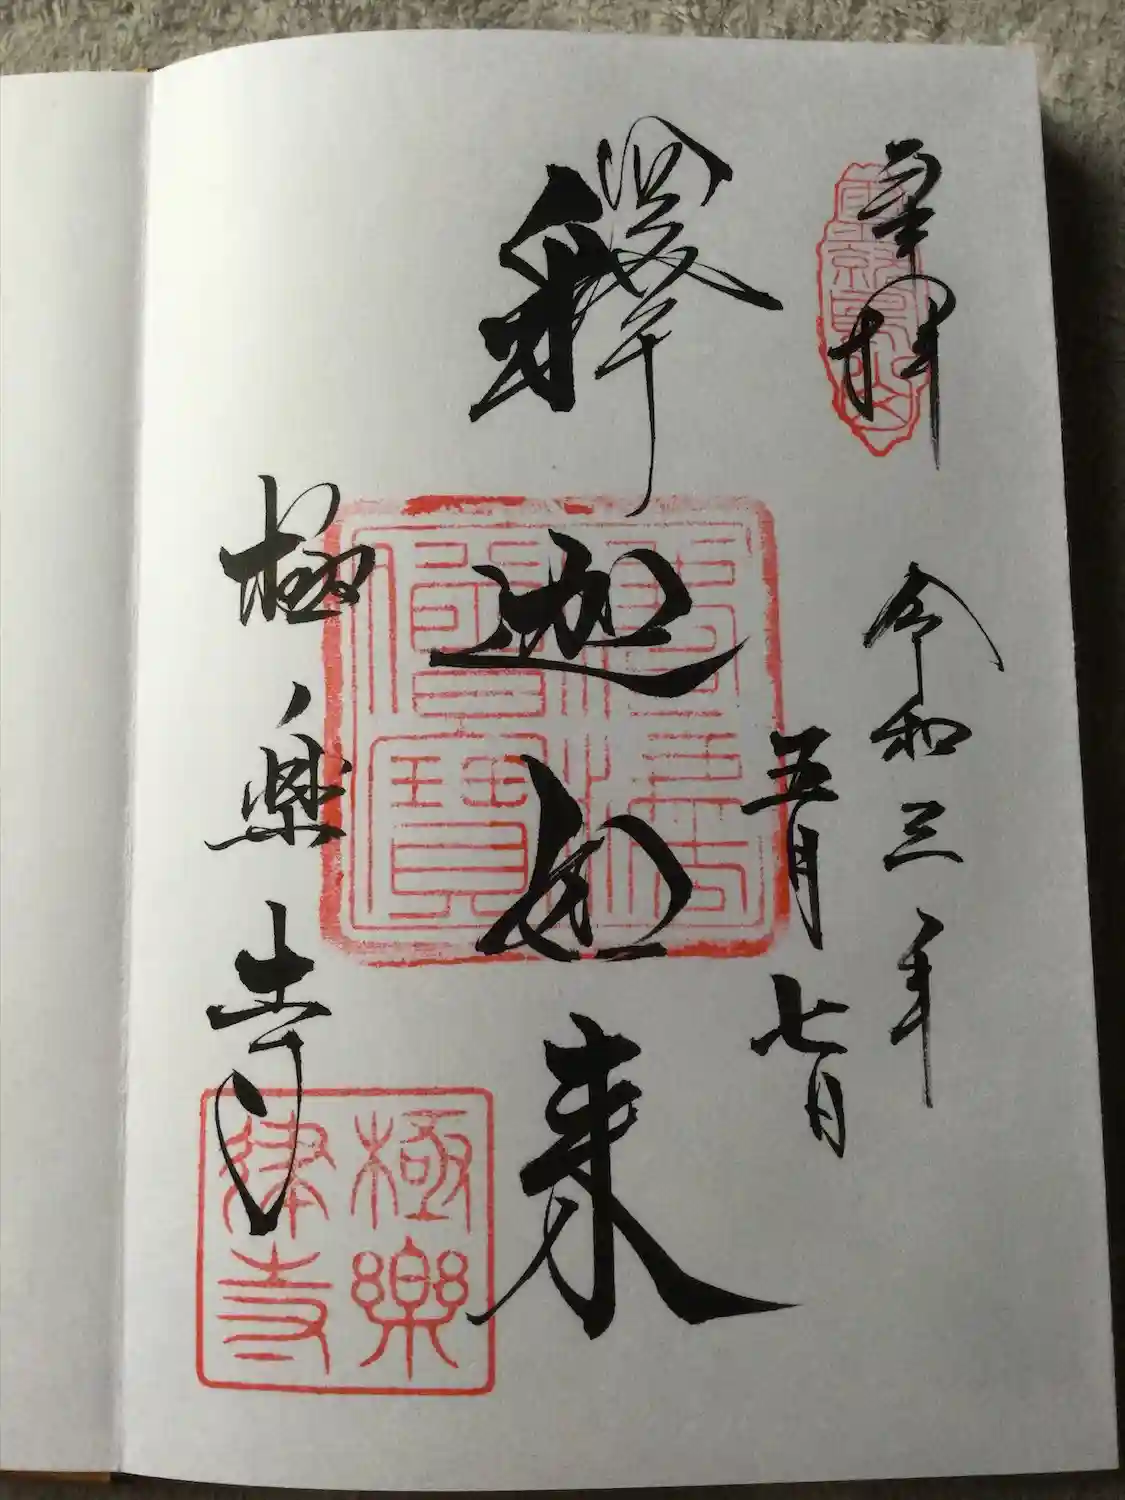 奉拝
令和三年
五月七日
釋迦如来
極楽寺
佛法僧寶
極樂律寺